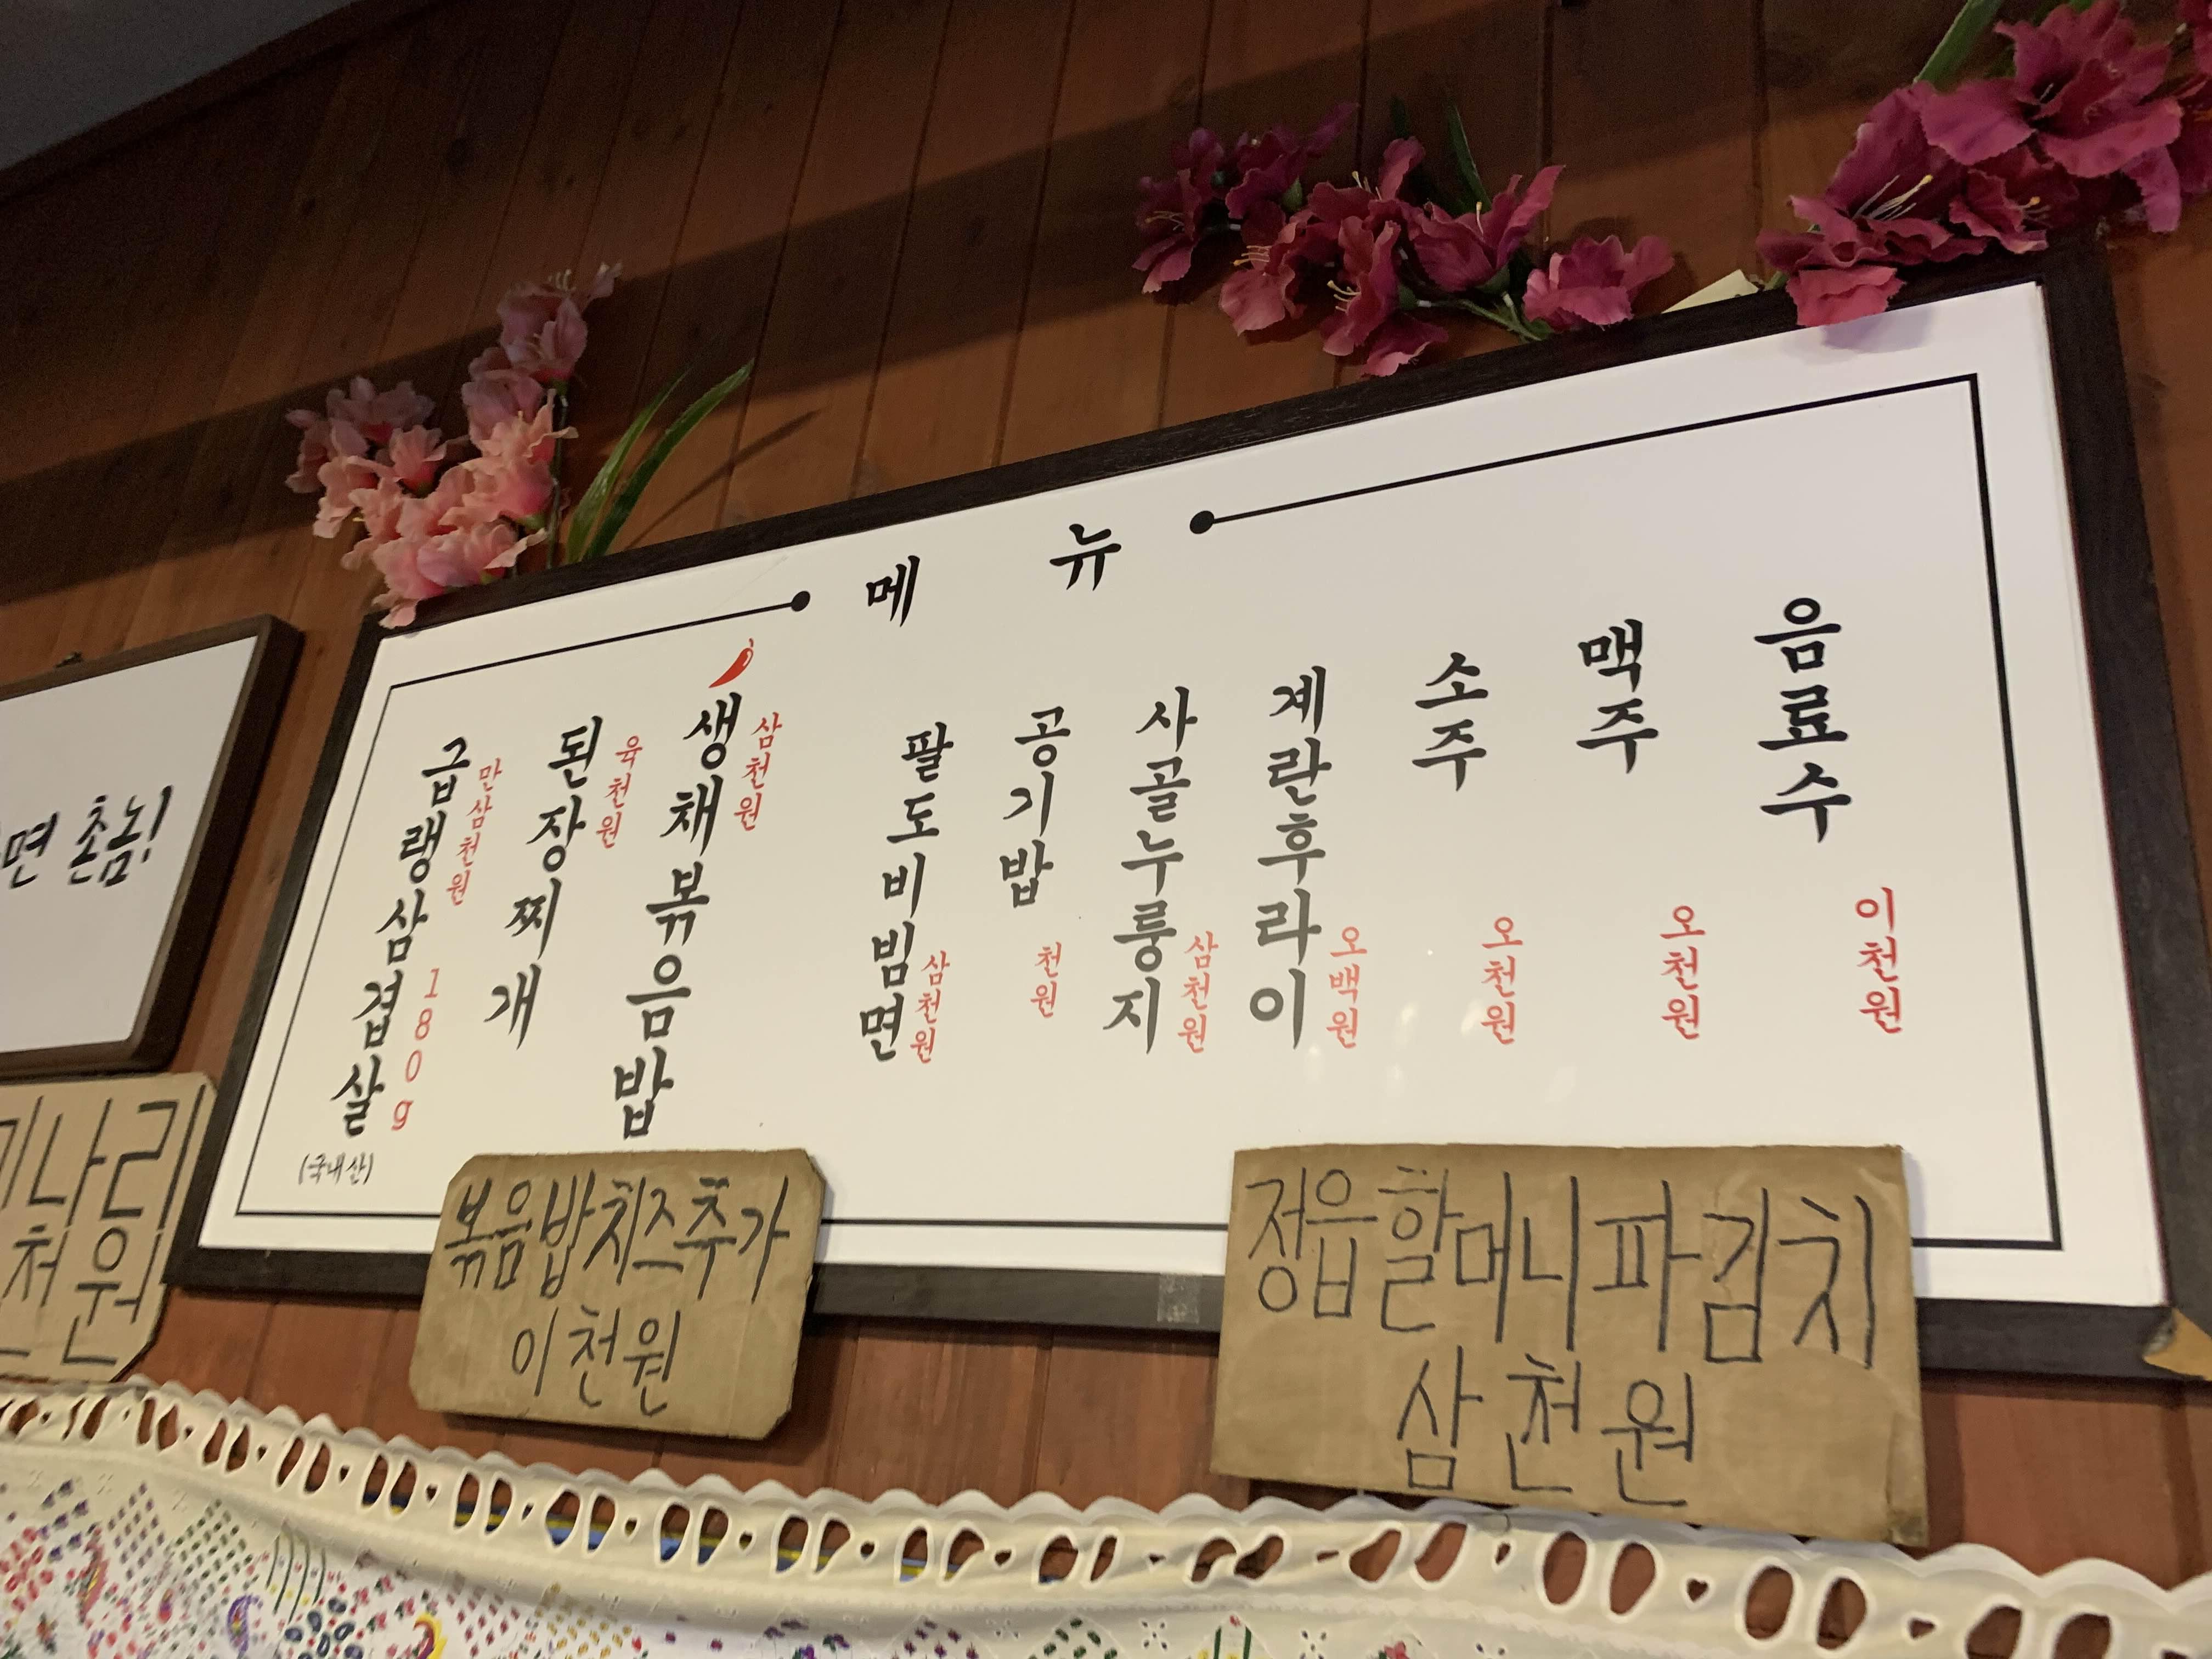 메 뉴
급랭삼겹살
만삼천원
180g
(국내산)
된장찌개
육천원
생채볶음밥
삼천원
팔도비빔면
삼천원
공기밥
천원
사골누룽지
삼천원
계란후라이
오백원
소주
오천원
맥주
오천원
음료수
이천원
면 촌놈!
미나리
천원
볶음밥치즈추가
이천원
정읍할머니파김치
삼천원